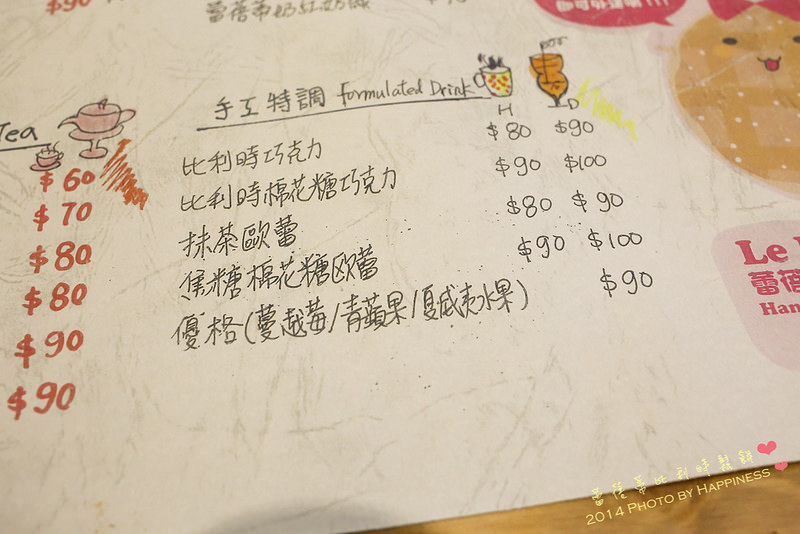 $90
蕾蓓蒂奶紅奶綠
即可外送喔!!!
手工特調 Formulated Drink
H D
Tea
比利時巧克力 $80 $90
比利時棉花糖巧克力 $90 $100
抹茶歐蕾 $80 $90
焦糖棉花糖欧蕾 $90 $100
優格(蔓越莓/青蘋果/夏威夷水果) $90
$60
$70
$80
$80
$90
$90
Le
蕾蓓
Han
蕾蓓蒂比利時鬆餅
2014 PHOTO BY HAPPINESS